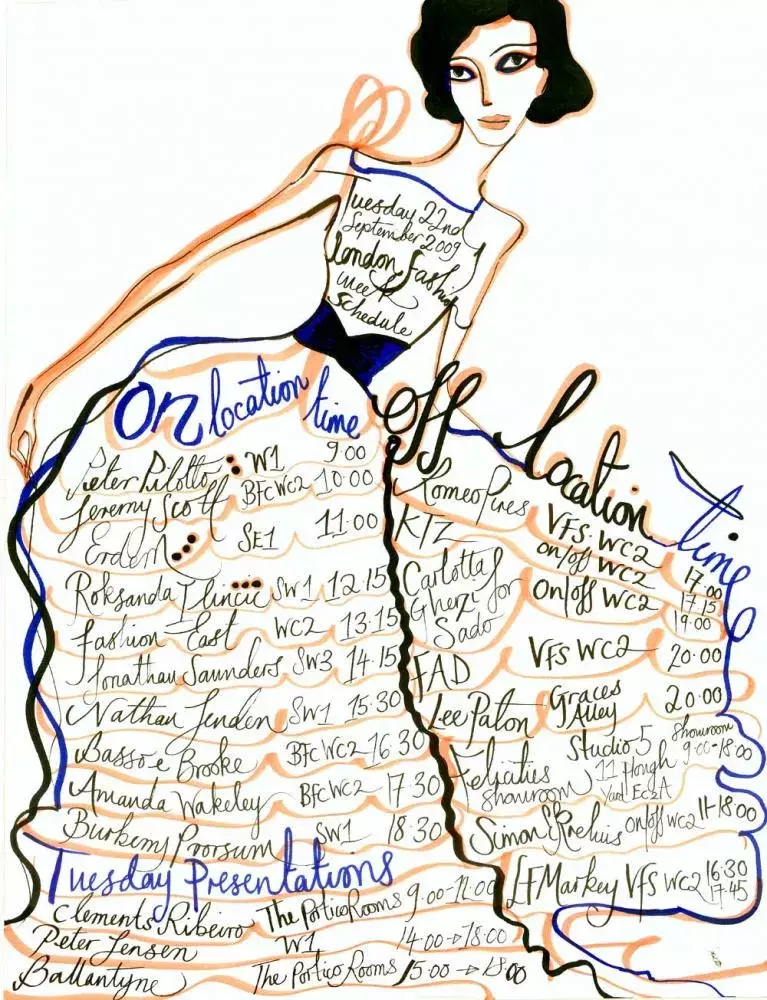 Tuesday 22nd
September 2009
London Fashion
Week
Schedule
On location time
Pieter Pilotto W1 9.00
Jeremy Scott BFC WC2 10.00
Erdem SE1 11.00
Roksanda Ilincic SW1 12.15
Fashion East WC2 13.15
Jonathan Saunders SW3 14.15
Nathan Jenden SW1 15.30
Basso e Brooke BFC WC2 16.30
Amanda Wakeley BFC WC2 17 30
Burberry Prorsum SW1 18.30
Off location time
Romeo Pires VFS. WC2 17.00
KTZ on/off WC2 17.15
Carlotta Gherzi for Sado On/off WC2 19.00
FAD VFS WC2 20.00
Lee Paton Graces Alley 20.00
Felicities showroom Studio 5 11 Hough Yard Ec2A Showroom 9.00-18.00
Simon on/off WC2 11-18.00
LF Markey VFS WC2 16.30 17.45
Tuesday Presentations
Clements Ribeiro The Portico Rooms 9.00-11.00
Peter Jensen W1 14.00→18.00
Ballantyne The Portico Rooms 15.00→18.00